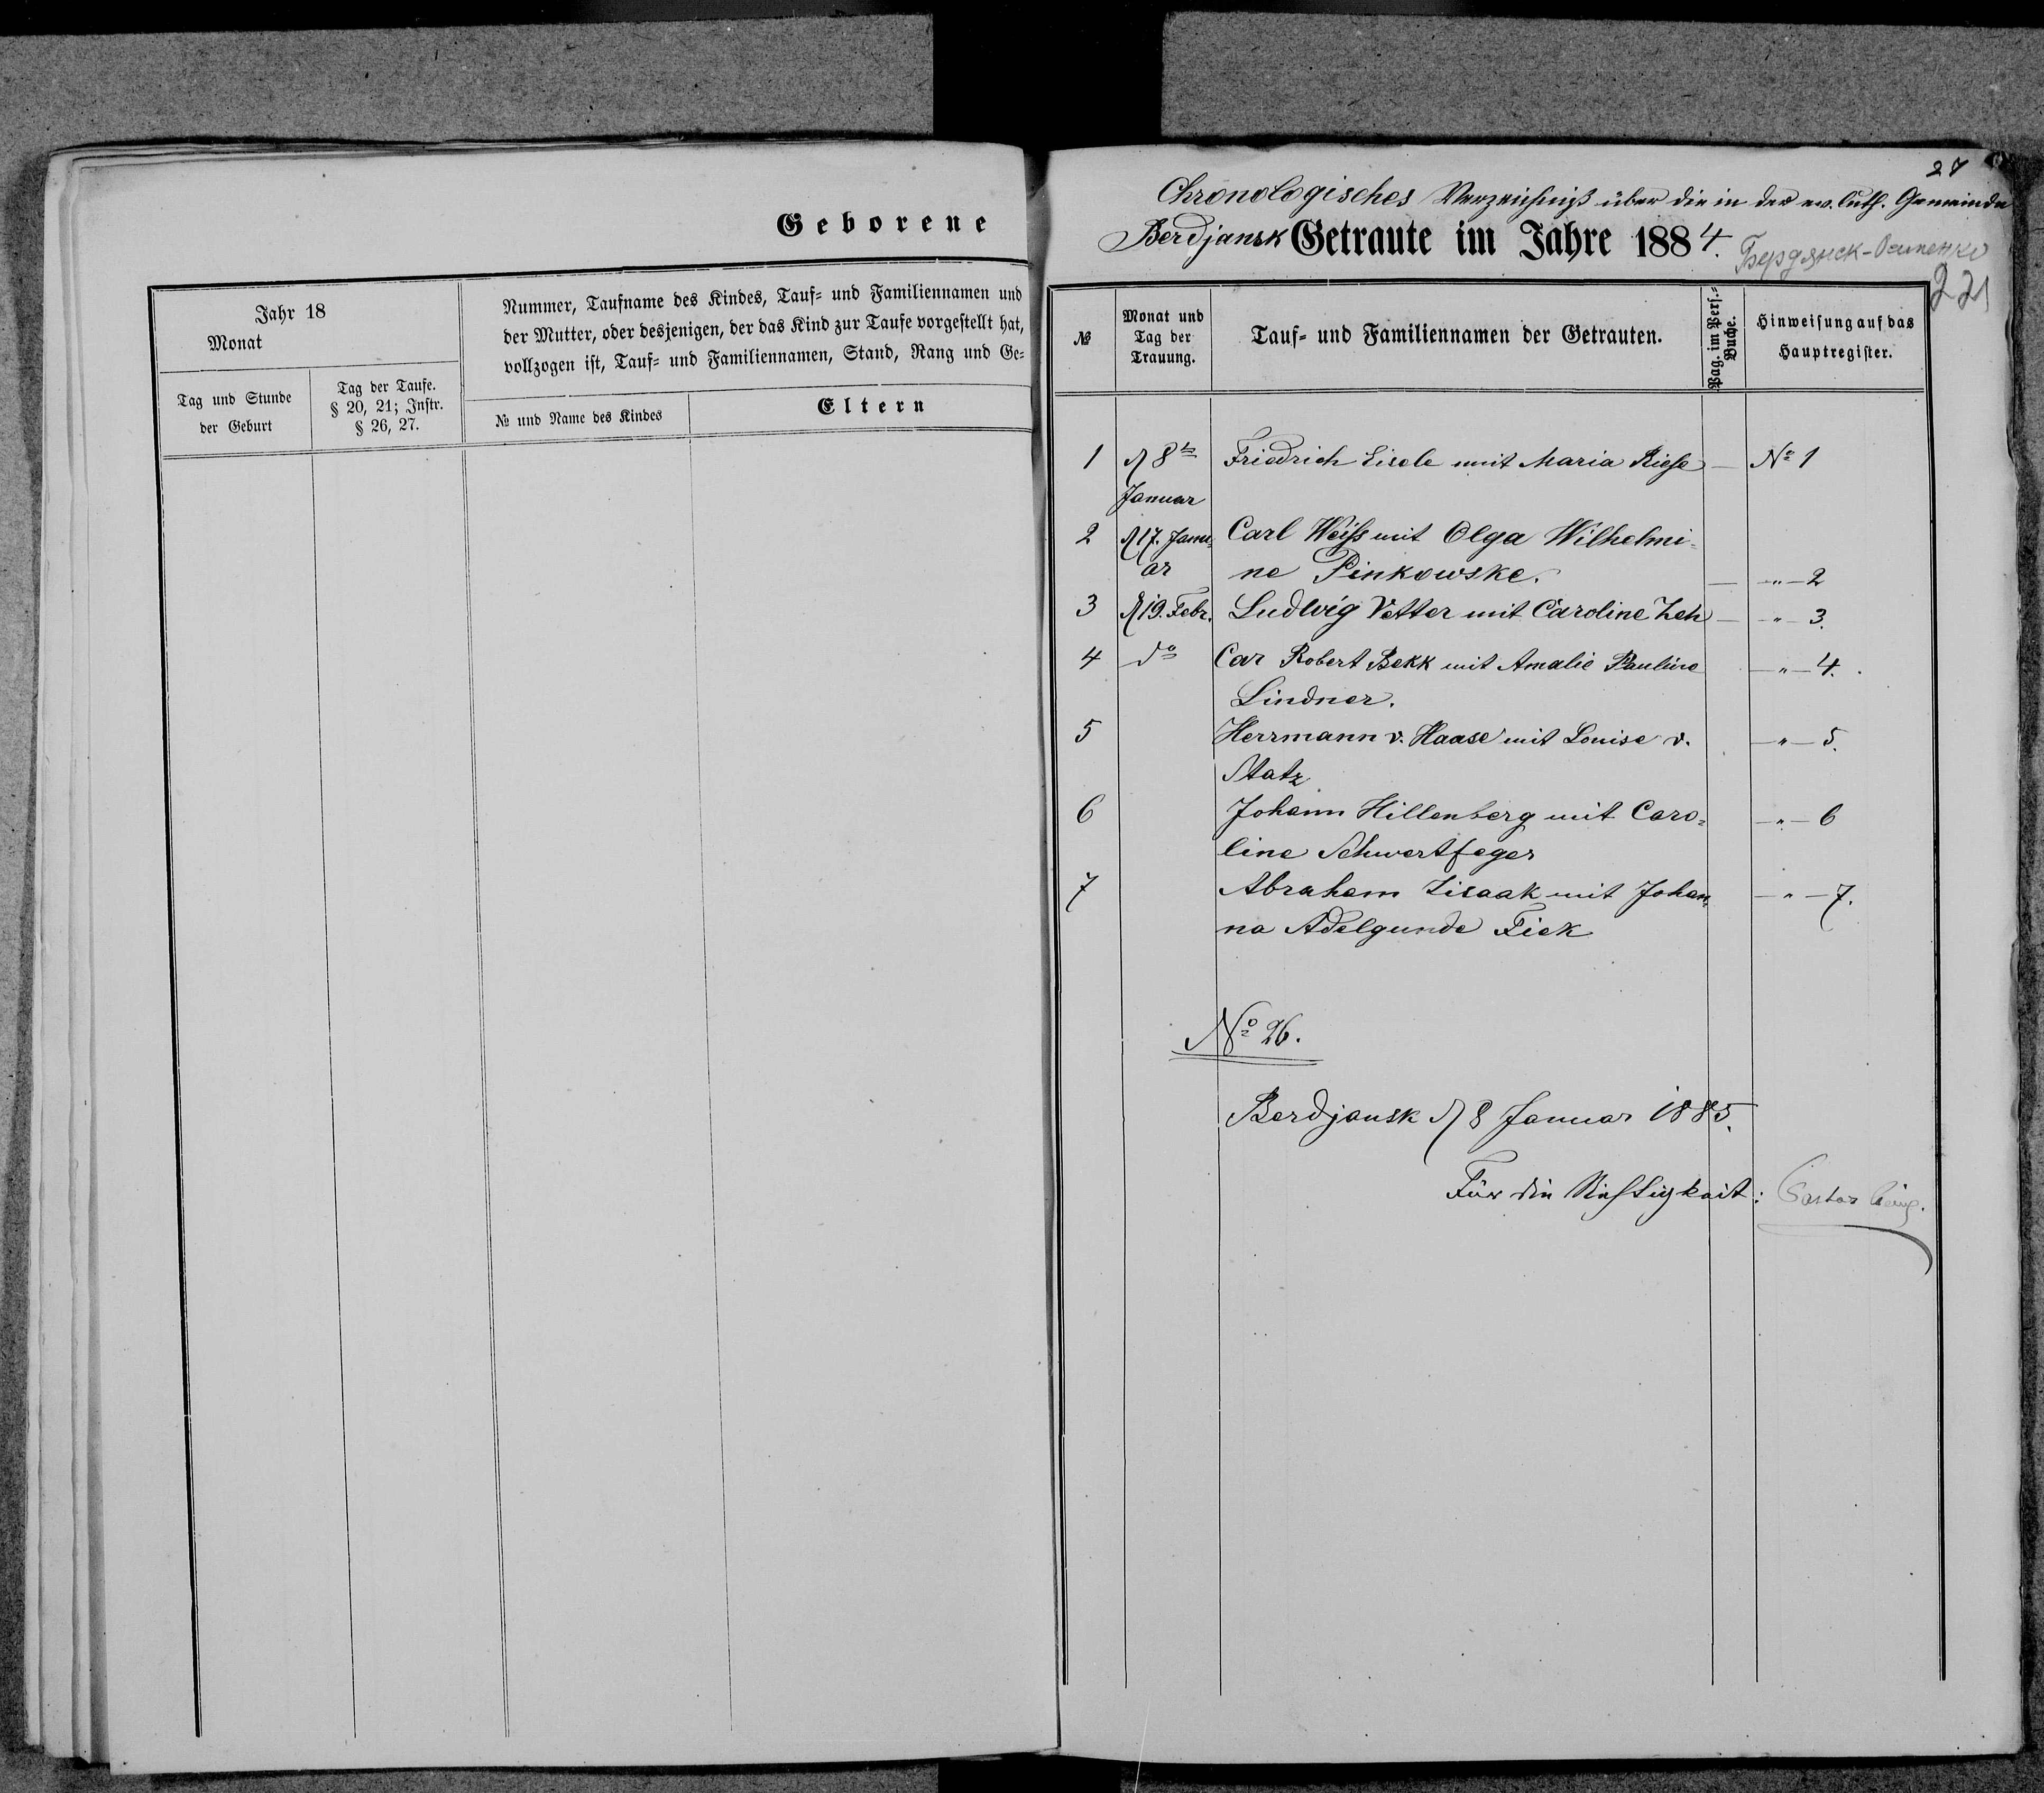 Geborene
Jahr 18
Monat
Nummer, Taufname des Kindes, Tauf- und Familiennamen und
der Mutter, oder desjenigen, der das Kind zur Taufe vorgestellt hat,
vollzogen ist, Tauf- und Familiennamen, Stand, Rang und Ge-
Tag und Stunde
der Geburt
Tag der Taufe.
§ 20, 21; Instr.
§ 26, 27.
№ und Name des Kindes
Eltern
27
Chronologisches Verzeichniß über die in der ev. luth. Gemeinde
Berdjansk Getraute im Jahre 1884.
Бердянск-Осипенко
221
№
Monat und
Tag der
Trauung.
Tauf- und Familiennamen der Getrauten.
Pag. im Pers.-
Buche.
Hinweisung auf das
Hauptregister.
1 d 8ten Friedrich Eisele mit Maria Riese — № 1
Januar
2 d 17. Janu- Carl Weiss mit Olga Wilhelmi-
ar ne Pinkowske. — „ — 2
3 d 19. Febr. Ludwig Vetter mit Caroline Zeh — „ — 3.
4 do Car Robert Bekk mit Amalie Pauline — „ — 4.
Lindner.
5 Herrmann v. Haase mit Louise v. — „ — 5.
Statz
6 Johann Hillenberg mit Caro- — „ — 6
line Schwertfeger
7 Abraham Lisaak mit Johan- — „ — 7.
na Adelgunde Fick
№ 26.
Berdjansk d 8 Januar 1885.
Für die Richtigkeit: Pastor